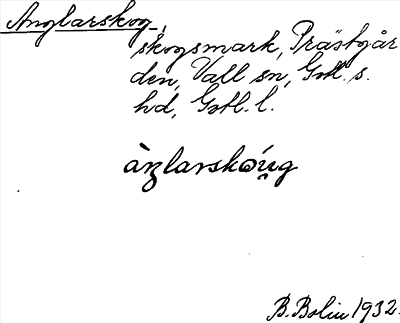 Anglarskog,
skogsmark, Prästgår
den, Vall sn, Gotl. s.
hd, Gotl. l.
àŋlarskóug
B. Bolin 1932.